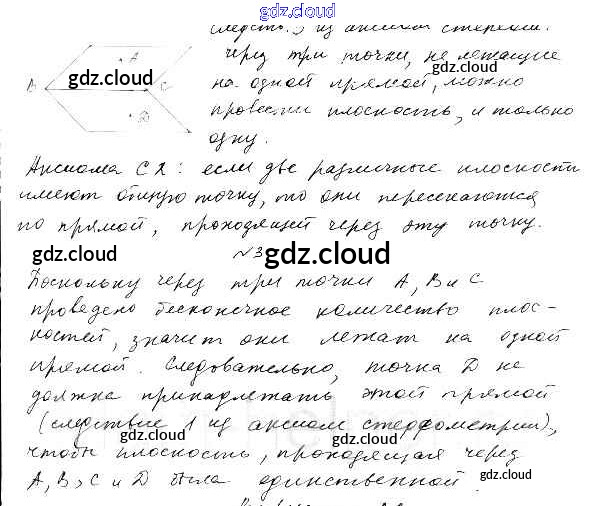 gdz.cloud
следств. 3 из аксиом стереом.
A
Через три точки, не лежащие
gdz.cloud
gdz.cloud
B
C
на одной прямой, можно
D
провести плоскость, и только
одну.
Аксиома С2: если две различные плоскости
имеют общую точку, то они пересекаются
по прямой, проходящей через эту точку.
gdz.cloud
№3
gdz.cloud
Поскольку через три точки A, B и C
проведено бесконечное количество плос-
костей, значит они лежат на одной
прямой. Следовательно, точка D не
должна принадлежать этой прямой
(следствие 1 из аксиом стереометрии),
gdz.cloud
gdz.cloud
чтобы плоскость, проходящая через
gdz.cloud
A, B, C и D была единственной.